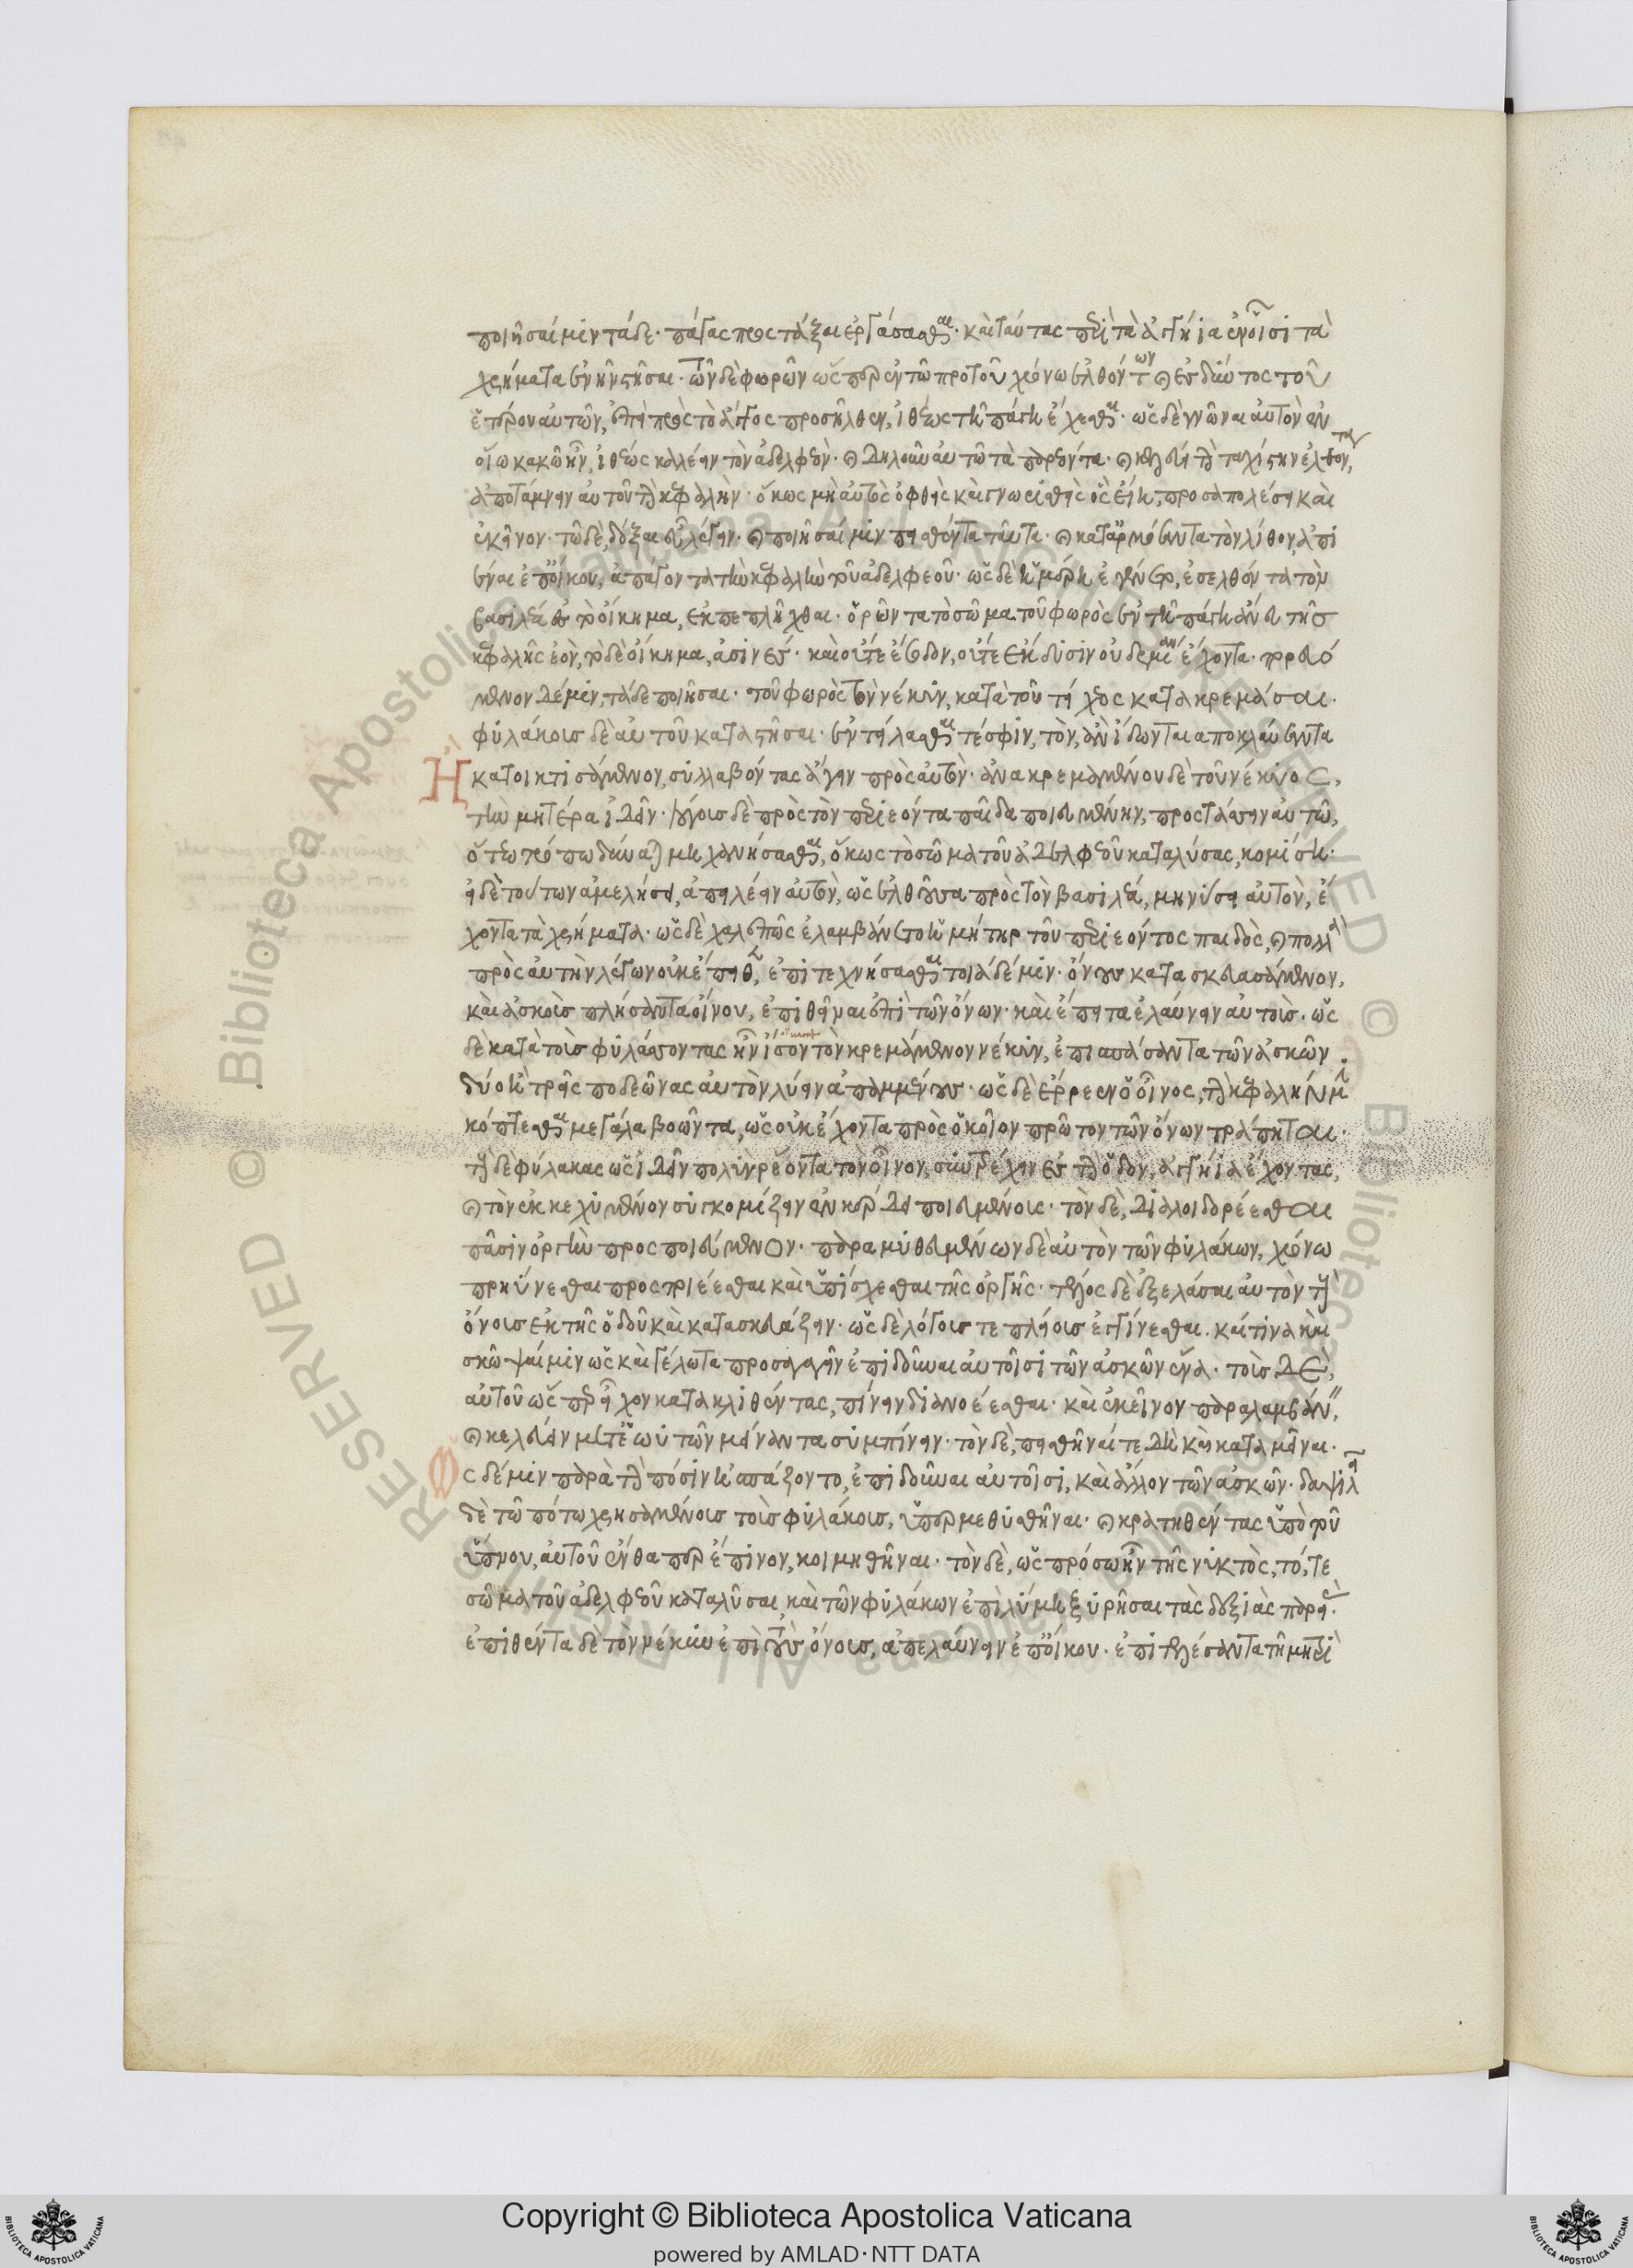 ποιῆσαί μιν τάδε· πάγας προστάξαι ἐργάσασθαι· καὶ ταύτας περὶ τὰ ἀγγήια ἐν οἷσι τὰ
χρήματα ἐνῆν στῆσαι· τῶν δὲ φωρῶν ὥσπερ ἐν τῶ προτοῦ χρόνω ἐλθόντων καὶ ἐσδύντος τοῦ
ἑτέρου αὐτῶν, ἐπεὶ πρὸς τὸ ἄγγος προσῆλθεν, ἰθέως τῆ πάγη ἔχεσθαι· ὡς δὲ γνῶναι αὐτὸν ἐν
οἵω κακῶ ἦν, ἰθέως καλέειν τὸν ἀδελφεόν· καὶ δηλοῦν αὐτῶ τὰ παρεόντα· καὶ κελεύειν τὴν ταχίστην ἐλθόντα,
ἀποτάμνειν αὐτοῦ τὴν κεφαλὴν· ὅκως μὴ αὐτὸς ὀφθεὶς καὶ γνωρισθεὶς ὃς εἴη, προσαπολέση καὶ
ἐκεῖνον· τῶ δὲ, δόξαι εὖ λέγειν· καὶ ποιῆσαί μιν πεισθέντα ταῦτα· καὶ καταρμόσαντα τὸν λίθον, ἀπι
έναι ἐπ' οἴκου, ἀπάγοντα τὴν κεφαλὴν τοῦ ἀδελφεοῦ· ὡς δὲ ἡμέρη ἐγένετο, ἐσελθόντα τὸν
βασιλέα ἐς τὸ οἴκημα, ἐκπεπλῆχθαι· ὁρῶντα τὸ σῶμα τοῦ φωρὸς ἐν τῆ πάγη ἄνευ τῆς
κεφαλῆς ἐὸν, τὸ δὲ οἴκημα, ἀσινές· καὶ οὔτε ἔσοδον, οὔτε ἔκδυσιν οὐδεμίαν ἔχοντα· ἀπορεύ
μενον δέ μιν, τάδε ποιῆσαι· τοῦ φωρὸς τὸν νέκυν, κατὰ τοῦ τείχεος κατακρεμάσαι·
φυλάκους δὲ αὐτοῦ καταστῆσαι· ἐντείλασθαί τέ σφιν, τὸν, ἂν ἴδωνται ἀποκλαύσαντα
Ἢ κατοικτισάμενον, συλλαβόντας ἄγειν πρὸς αὐτὸν· ἀνακρεμαμένου δὲ τοῦ νέκυος,
τὴν μητέρα ἰδεῖν· λόγους δὲ πρὸς τὸν περιεόντα παῖδα ποιευμένην, προστάσσειν αὐτῶ,
ὅτεω τρόπω δύναται μηχανήσασθαι, ὅκως τὸ σῶμα τοῦ ἀδελφεοῦ καταλύσας, κομίση·
εἰ δὲ τούτων ἀμελήσει, ἀπειλέειν αὐτὸν, ὡς ἐλθοῦσα πρὸς τὸν βασιλέα, μηνύσει αὐτὸν, ἔ
χοντα τὰ χρήματα· ὡς δὲ χαλεπῶς ἐλαμβάνετο ἡ μήτηρ τοῦ περιεόντος παιδὸς, καὶ πολλὰ
πρὸς αὐτὴν λέγων οὐκ ἔπειθε, ἐπιτεχνήσασθαι τοιάδε μιν· ὄνους κατασκευασάμενον,
καὶ ἀσκοὺς πλήσαντα οἴνου, ἐπιθεῖναι ἐπὶ τῶν ὄνων· καὶ ἔπειτα ἐλαύνειν αὐτοὺς· ὡς
δὲ κατὰ τοὺς φυλάσσοντας ἦν ἴσον τὸν κρεμάμενον νέκυν, ἐπισπάσαντα τῶν ἀσκῶν
δύο ἢ τρεῖς ποδεῶνας αὐτὸν λύειν ἀπαμμένους· ὡς δὲ ἔρρεεν ὁ οἶνος, τὴν κεφαλήν μιν
κόπτεσθαι μεγάλα βοῶντα, ὡς οὐκ ἔχοντα πρὸς ὁκοῖον πρῶτον τῶν ὄνων τράπηται·
τοὺς δὲ φυλάκας ὡς ἰδεῖν πολὺν ῥέοντα τὸν οἶνον, συντρέχειν ἐς τὴν ὁδὸν, ἀγγήια ἔχοντας,
καὶ τὸν ἐκκεχυμένον συγκομίζειν ἐν κέρδει ποιευμένους· τὸν δὲ, διαλοιδορέεσθαι
πᾶσιν ὀργὴν προσποιεύμενον· παραμυθευμένων δὲ αὐτὸν τῶν φυλάκων, χρόνω
πρηΰνεσθαι προσποιέεσθαι καὶ ὑπίσχεσθαι τῆς ὀργῆς· τέλος δὲ ἐξελάσαι αὐτὸν τοὺς
ὄνους ἐκ τῆς ὁδοῦ καὶ κατασκευάζειν· ὡς δὲ λόγους τε πλείους ἐγγίνεσθαι· καί τινα καὶ
σκῶψαί μιν ὡς καὶ γέλωτα προσαγαγεῖν ἐπιδοῦναι αὐτοῖσι τῶν ἀσκῶν ἕνα· τοὺς δὲ,
αὐτοῦ ὥσπερ εἶχον κατακλιθέντας, πίνειν διανοέεσθαι· καὶ ἐκεῖνον παραλαμβάνειν,
καὶ κελεύειν μετ' ἑωυτῶν μείναντα συμπίνειν· τὸν δὲ, πεισθῆναί τε δὴ καὶ καταμεῖναι·
Ὡς δέ μιν παρὰ τὴν πόσιν ἠσπάζοντο, ἐπιδοῦναι αὐτοῖσι, καὶ ἄλλον τῶν ἀσκῶν· δαψιλεῖ
δὲ τῶ πότω χρησαμένους τοὺς φυλάκους, ὑπερμεθυσθῆναι· καὶ κρατηθέντας ὑπὸ τοῦ
ὕπνου, αὐτοῦ ἔνθα περ ἔπινον, κοιμηθῆναι· τὸν δὲ, ὡς πρόσω ἦν τῆς νυκτὸς, τό, τε
σῶμα τοῦ ἀδελφεοῦ καταλῦσαι, καὶ τῶν φυλάκων ἐπὶ λύμη ξυρῆσαι τὰς δεξιὰς παρηΐδας·
ἐπιθέντα δὲ τὸν νέκυν ἐπὶ τοὺς ὄνους, ἀπελαύνειν ἐπ' οἴκου· ἐπιτελέσαντα τῆ μητρὶ
Copyright © Biblioteca Apostolica Vaticana
powered by AMLAD·NTT DATA